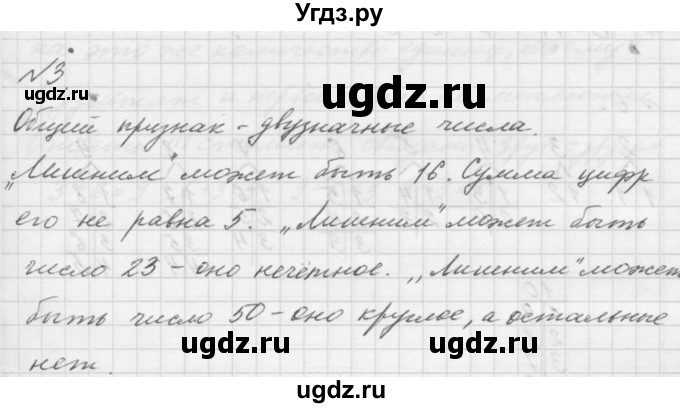 Угдз.ру
№3
ugdz.ru
ugdz.ru
Общий признак - двузначные числа.
„Лишним" может быть 16. Сумма цифр
его не равна 5. „Лишним" может быть
число 23 - оно нечётное. „Лишним" может
быть число 50 - оно круглое, а остальные
ugdz.ru
ugdz.ru
нет.
ugdz.ru